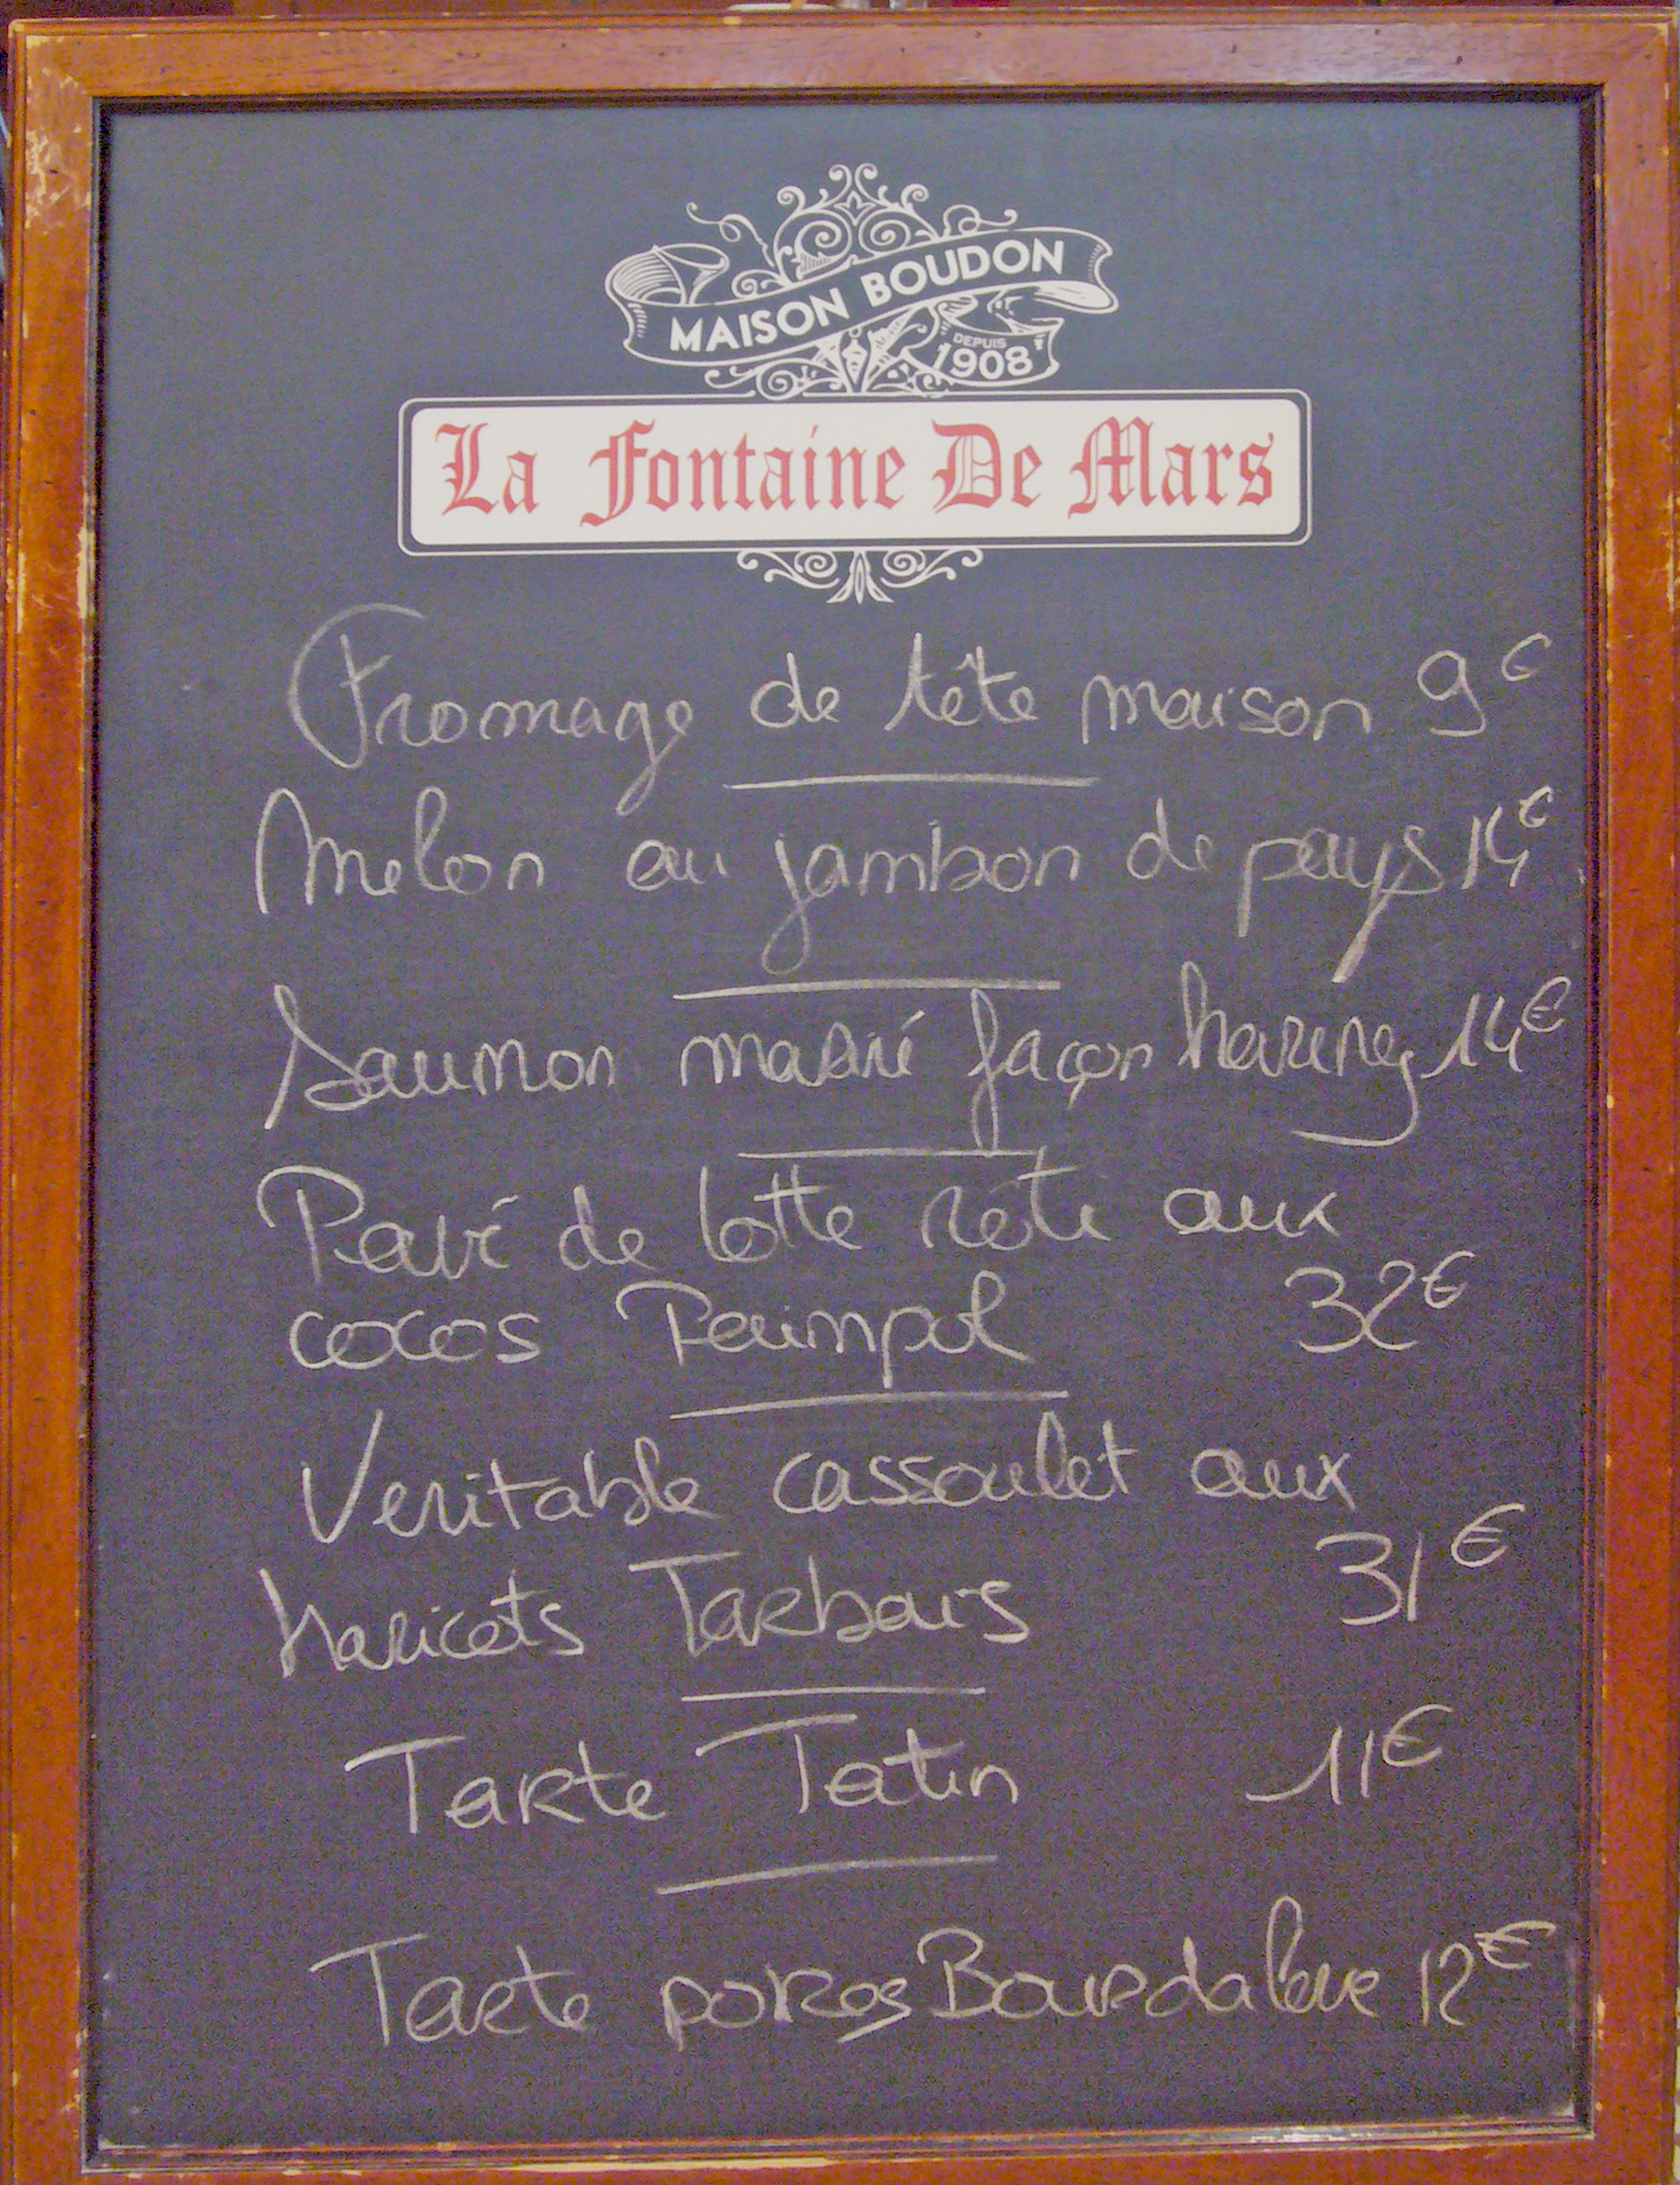 MAISON BOUDON
DEPUIS
1908
La Fontaine De Mars
Fromage de tête maison 9€
Melon au jambon de pays 14€
Saumon mariné façon hareng 14€
Pavé de lotte rôti aux
cocos Paimpol 32€
Veritable cassoulet aux
haricots Tarbais 31€
Tarte Tatin 11€
Tarte poires Bourdaloue 12€